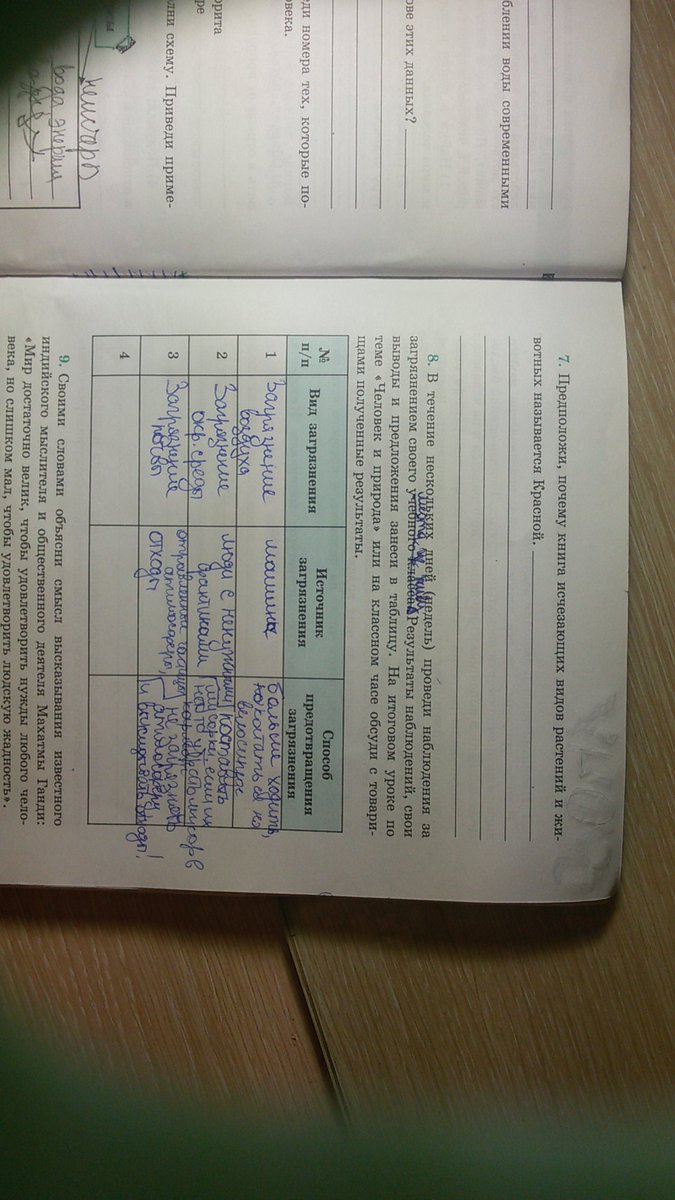 блении воды современными
ове этих данных?
ди номера тех, которые по-
овека.
орита
ре
лни схему. Приведи приме-
неисчерп
вода энергия
7. Предположи, почему книга исчезающих видов растений и жи-
вотных называется Красной.
8. В течение нескольких дней (недель) проведи наблюдения за
загрязнением своего учебного класса. Результаты наблюдений, свои
выводы и предложения занеси в таблицу. На итоговом уроке по
теме «Человек и природа» или на классном часе обсуди с товари-
щами полученные результаты.
№ п/п
Вид загрязнения
Источник загрязнения
Способ предотвращения загрязнения
1
Загрязнение
воздуха
машины
больше ходить,
велосипеде
2
Загрязнение
окр. среды
люди с ненужными
фантиками
поставить
3
Загрязнение
почвы
атмосферы,
отходы
не загрязнять
атмосферу
и выкидывать отходы!
4
9. Своими словами объясни смысл высказывания известного
индийского мыслителя и общественного деятеля Махатмы Ганди:
«Мир достаточно велик, чтобы удовлетворить нужды любого чело-
века, но слишком мал, чтобы удовлетворить людскую жадность».